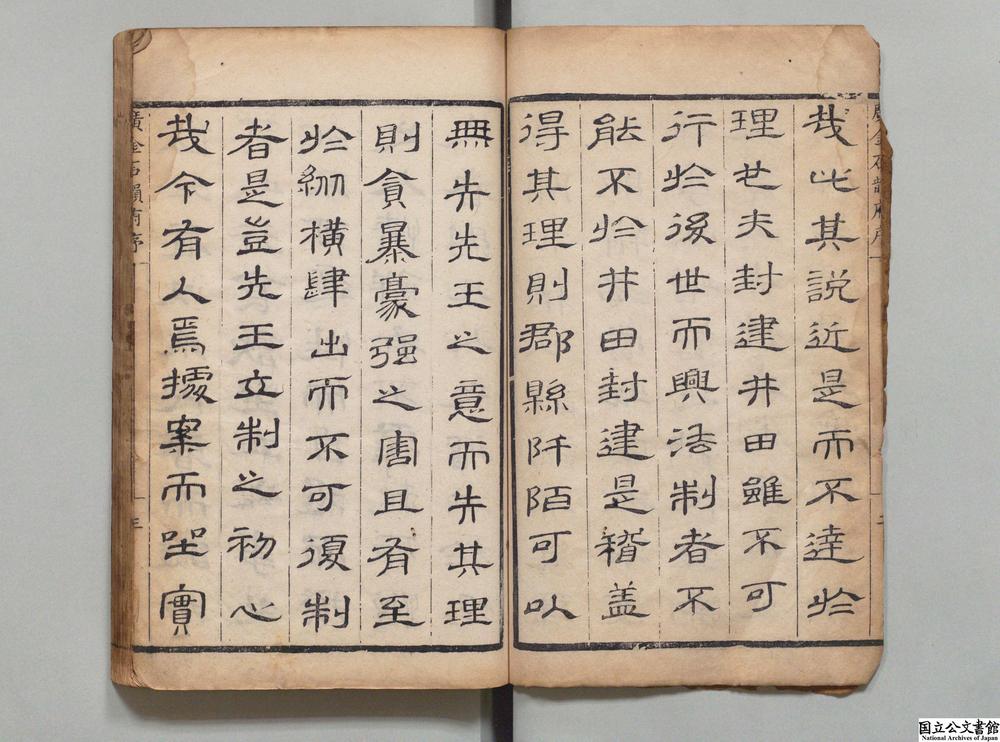 哉此其說近是而不達於
理也夫封建井田雖不可
行於後世而興法制者不
能不於井田封建是稽蓋
得其理則郡縣阡陌可以
無失先王之意而失其理
則貪暴豪强之害且有至
於紃橫肆出而不可復制
者是豈先王立制之初心
哉今有人焉據案而坐實
廣金石韻府序
三
国立公文書館
National Archives of Japan